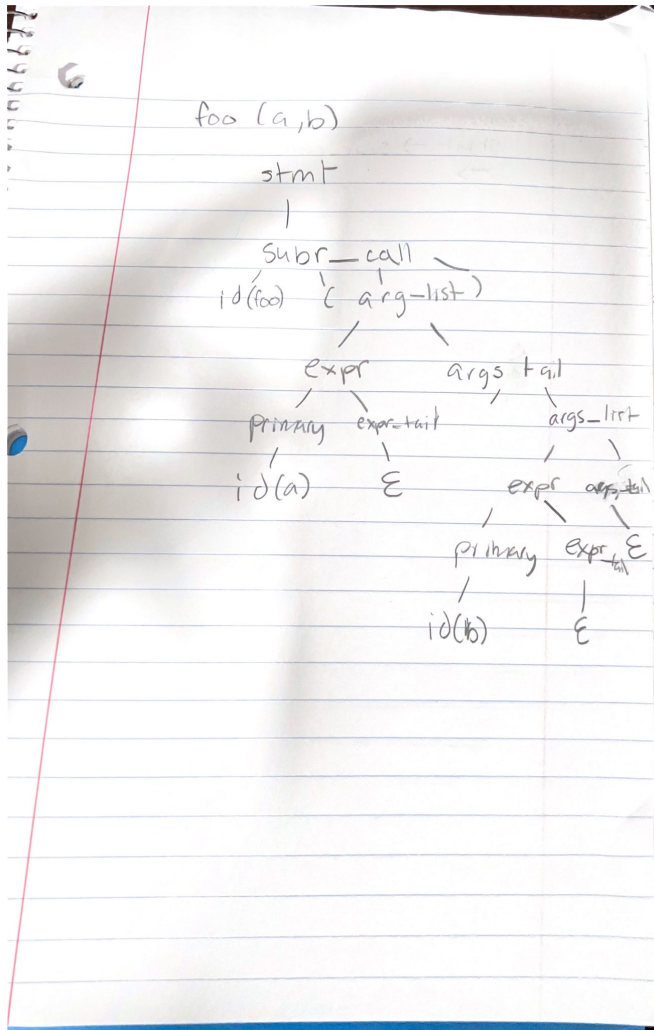 foo (a,b)
stmt
subr_call
id(foo) ( arg-list )
expr args tail
primary expr-tail args_list
id(a) ε expr args_tail
primary expr_tail ε
id(b) ε